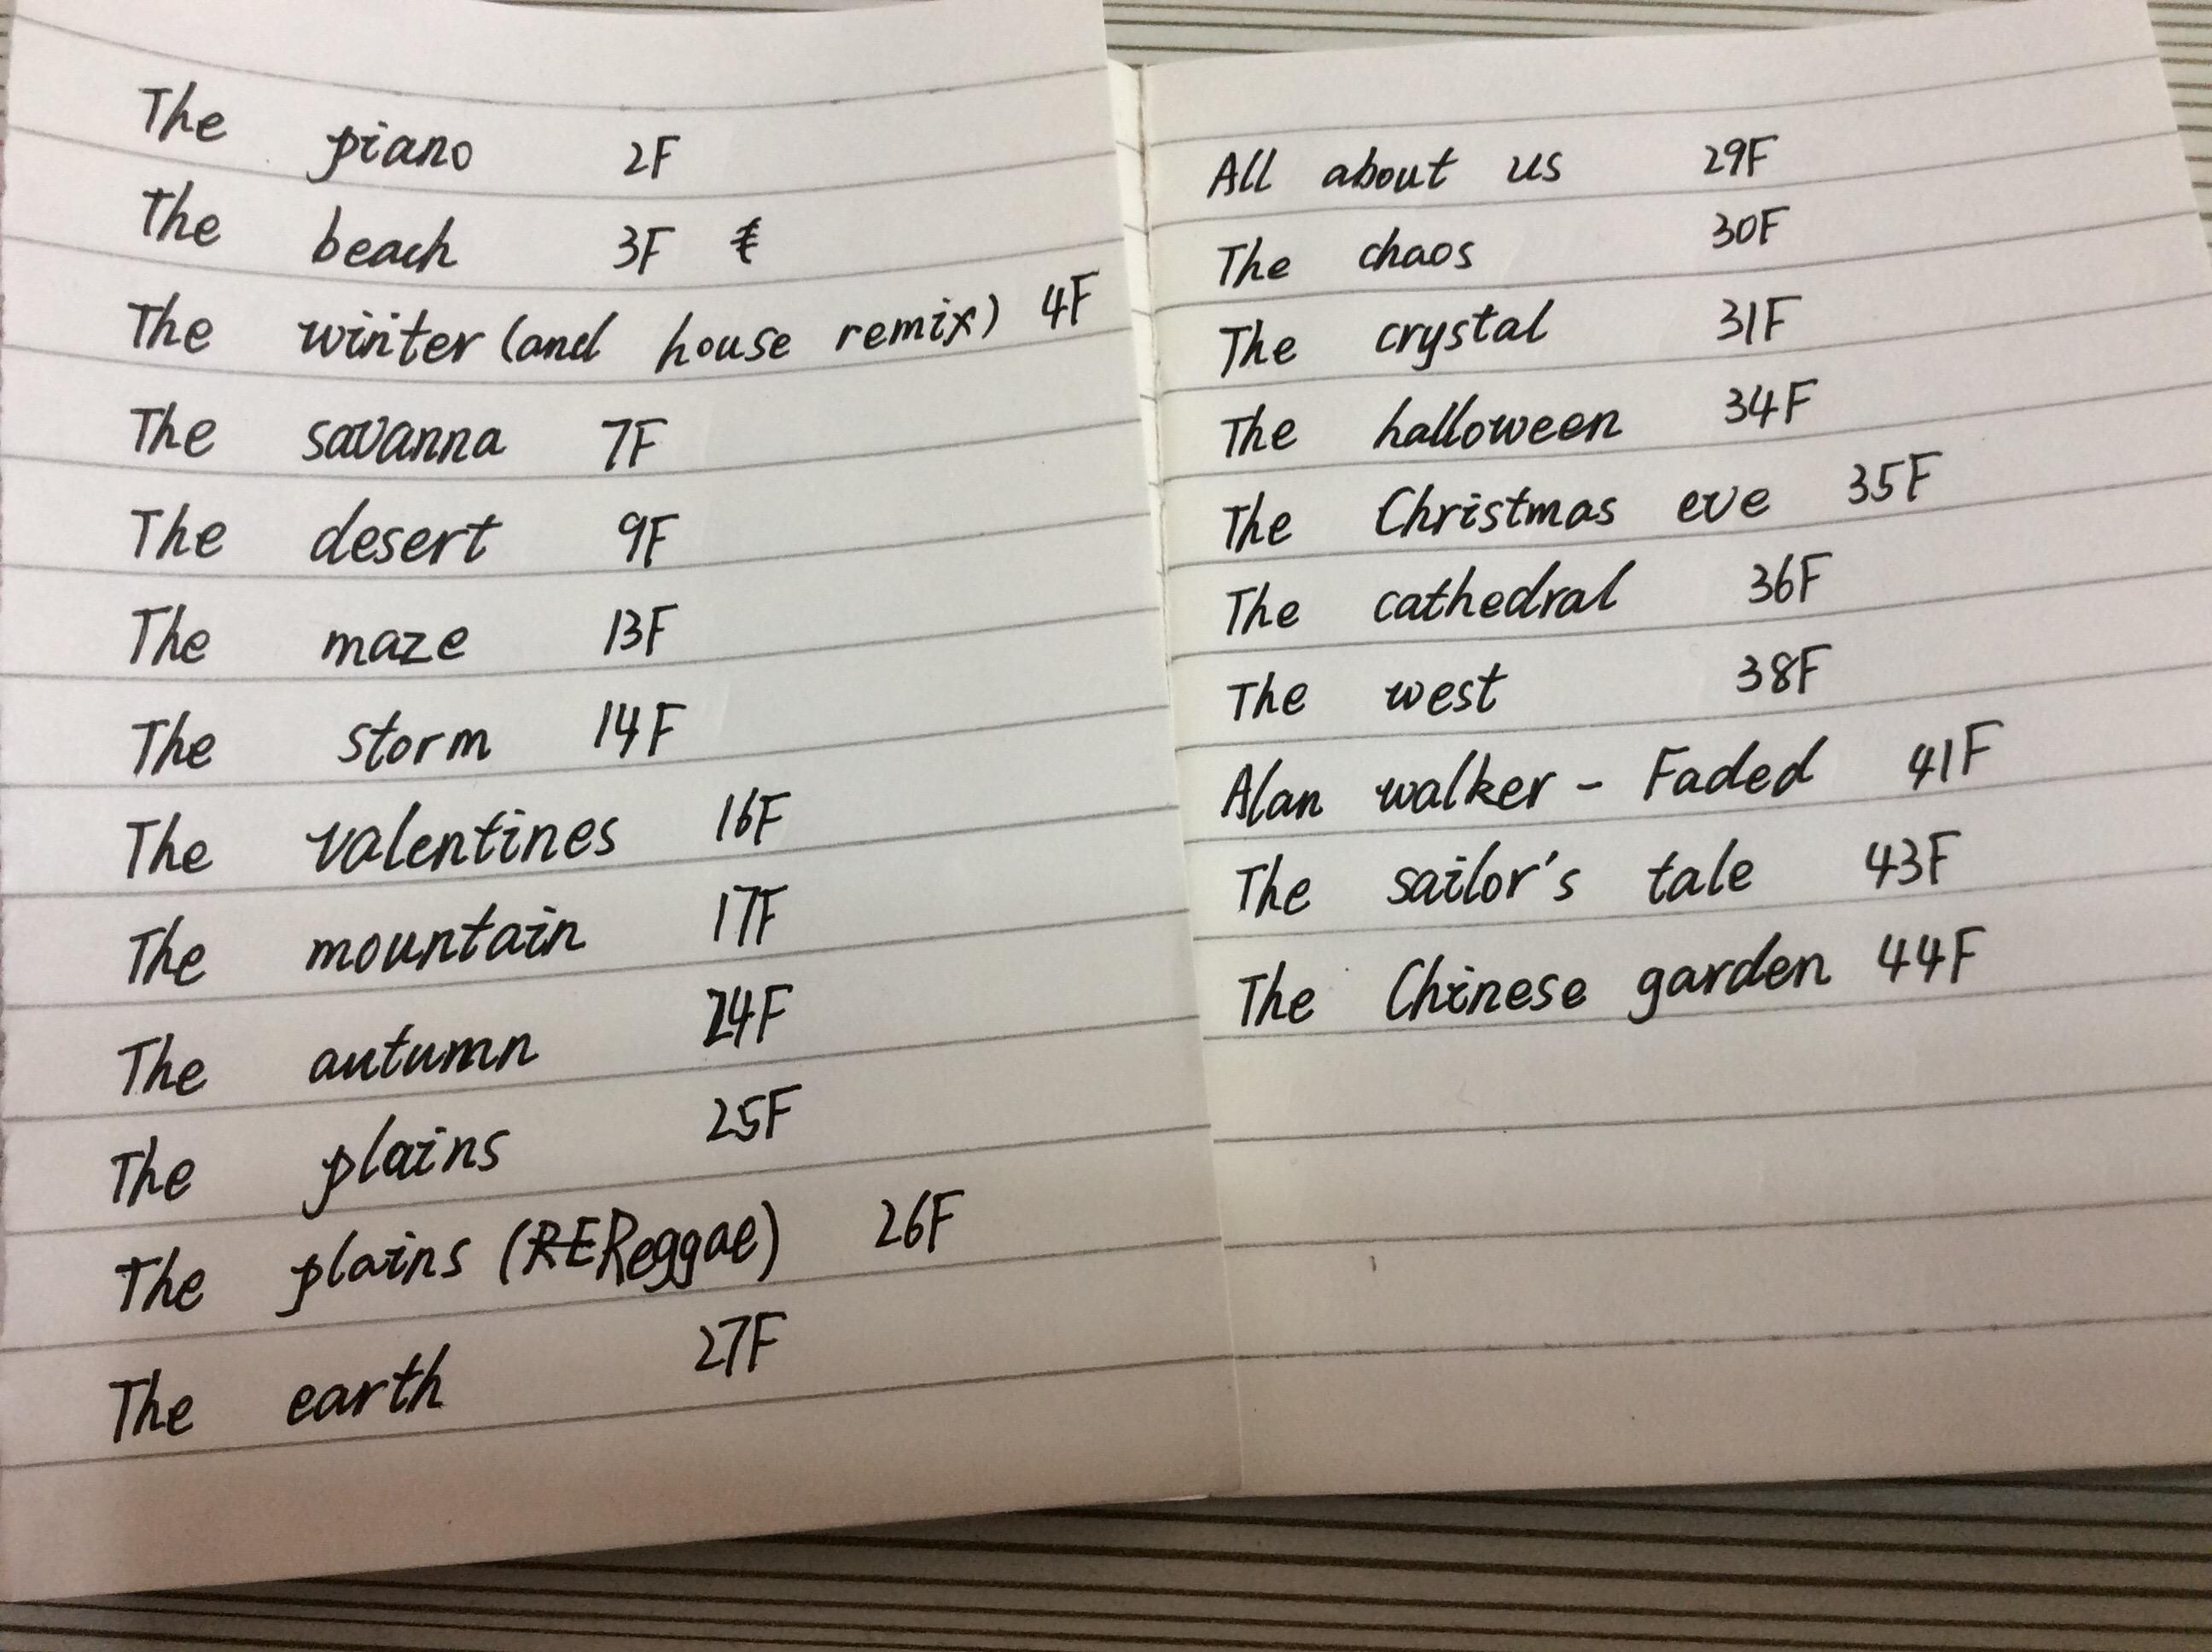 The piano 2F
The beach 3F
The winter (and house remix) 4F
The savanna 7F
The desert 9F
The maze 13F
The storm 14F
The valentines 16F
The mountain 17F
The autumn 24F
The plains 25F
The plains (RE Reggae) 26F
The earth 27F
All about us 29F
The chaos 30F
The crystal 31F
The halloween 34F
The Christmas eve 35F
The cathedral 36F
The west 38F
Alan walker - Faded 41F
The sailor's tale 43F
The Chinese garden 44F